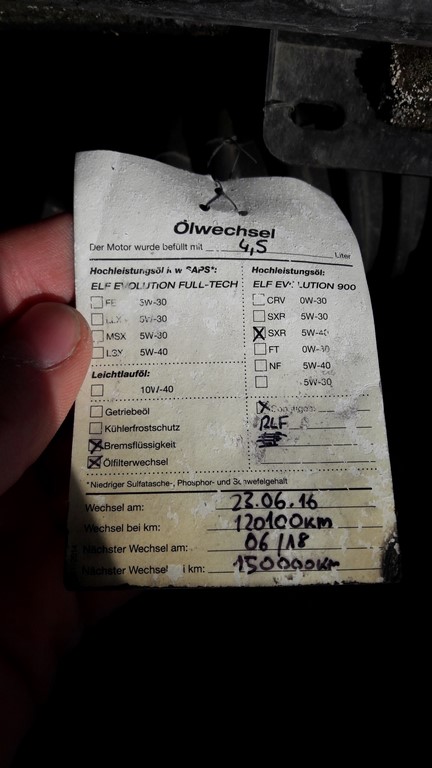 Ölwechsel
Der Motor wurde befüllt mit 4,5 Liter
Hochleistungsöl SAPS*:
ELF EVOLUTION FULL-TECH
FE 5W-30
5W-30
MSX 5W-30
LSX 5W-40
Leichtlauföl:
10W-40
Getriebeöl
Kühlerfrostschutz
Bremsflüssigkeit
Ölfilterwechsel
Hochleistungsöl:
ELF EVOLUTION 900
CRV 0W-30
SXR 5W-30
SXR 5W-40
FT 0W-30
NF 5W-40
5W-30
RLF
*Niedriger Sulfatasche-, Phosphor- und Schwefelgehalt
Wechsel am: 23.06.16
Wechsel bei km: 120100km
Nächster Wechsel am: 06/18
Nächster Wechsel km: 150000km